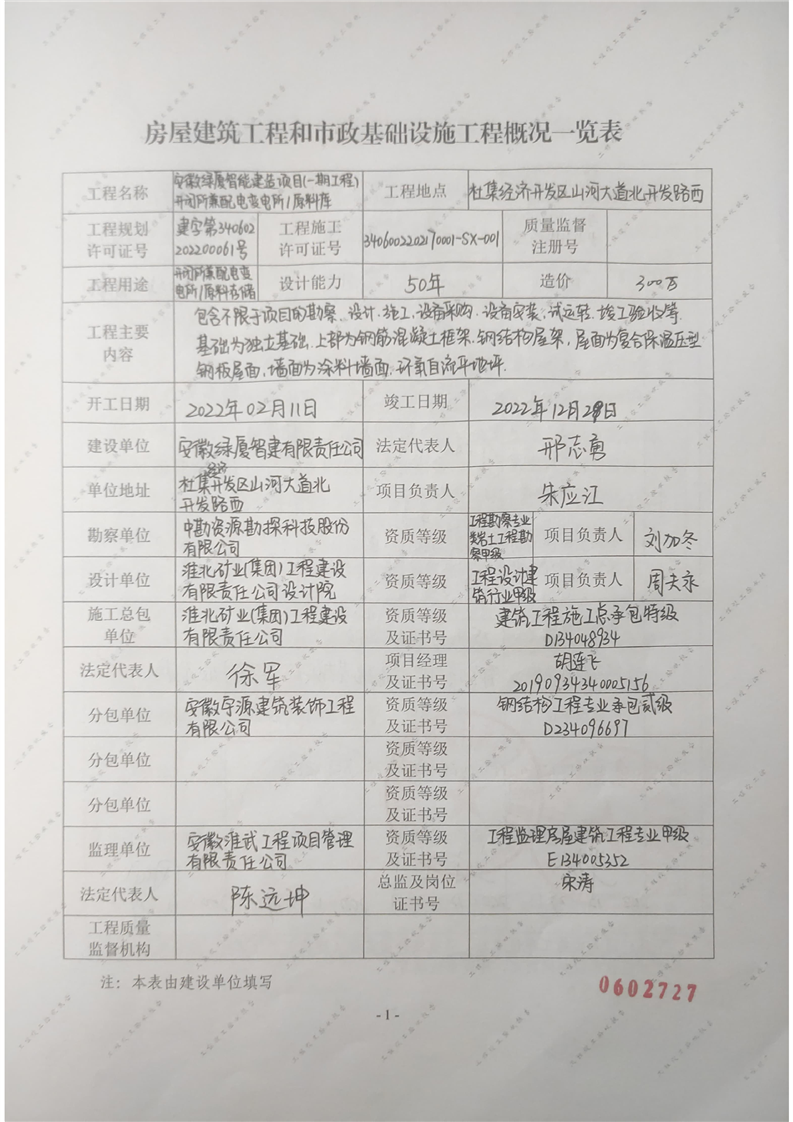 房屋建筑工程和市政基础设施工程概况一览表
工程名称
安徽绿厦智能建造项目(一期工程)
开闭所兼配电变电所/原料库
工程地点
杜集经济开发区山河大道北开发路西
工程规划
许可证号
建字第340602
202200061号
工程施工
许可证号
3406002202170001-SX-001
质量监督
注册号
工程用途
开闭所兼配电变
电所/原料存储
设计能力
50年
造价
300万
工程主要
内容
包含不限于项目的勘察、设计、施工、设备采购、设备安装、试运转、竣工验收等.
基础为独立基础,上部为钢筋混凝土框架,钢结构屋架,屋面为复合保温压型
钢板屋面,墙面为涂料墙面,环氧自流平地坪.
开工日期
2022年02月11日
竣工日期
2022年12月28日
建设单位
安徽绿厦智建有限责任公司
法定代表人
邢志勇
单位地址
经济
杜集开发区山河大道北
开发路西
项目负责人
朱应江
勘察单位
中勘资源勘探科技股份
有限公司
资质等级
工程勘察专业
类岩土工程勘
察甲级
项目负责人
刘加冬
设计单位
淮北矿业(集团)工程建设
有限责任公司设计院
资质等级
工程设计建
筑行业甲级
项目负责人
周夫永
施工总包
单位
淮北矿业(集团)工程建设
有限责任公司
资质等级
及证书号
建筑工程施工总承包特级
D134048934
法定代表人
徐军
项目经理
及证书号
胡连飞
20190934340005156
分包单位
安徽宇源建筑装饰工程
有限公司
资质等级
及证书号
钢结构工程专业承包贰级
D234096697
分包单位
资质等级
及证书号
分包单位
资质等级
及证书号
监理单位
安徽淮武工程项目管理
有限责任公司
资质等级
及证书号
工程监理房屋建筑工程专业甲级
E134005352
法定代表人
陈远坤
总监及岗位
证书号
宋涛
工程质量
监督机构
注：本表由建设单位填写
0602727
- 1 -